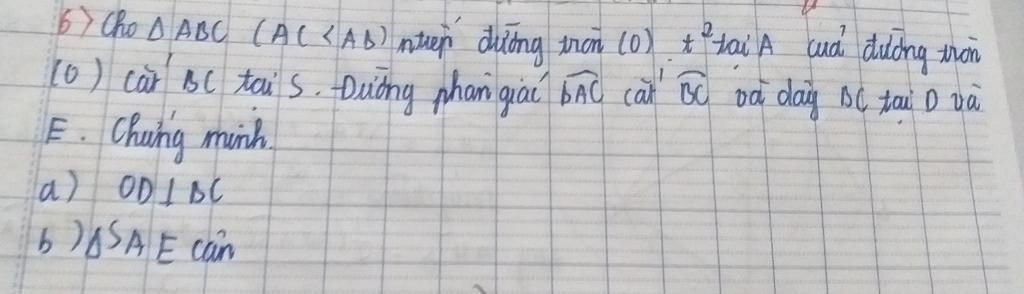 6) Cho Δ ABC (AC < AB) ntiếp đường tròn (O) t² tại A cuả đường tròn
(O) cắt BC tại S. Đường phân giác BAC cắt BC và dây BC tại D và
E. Chứng minh.
a) OD ⊥ BC
b) ΔSAE cân